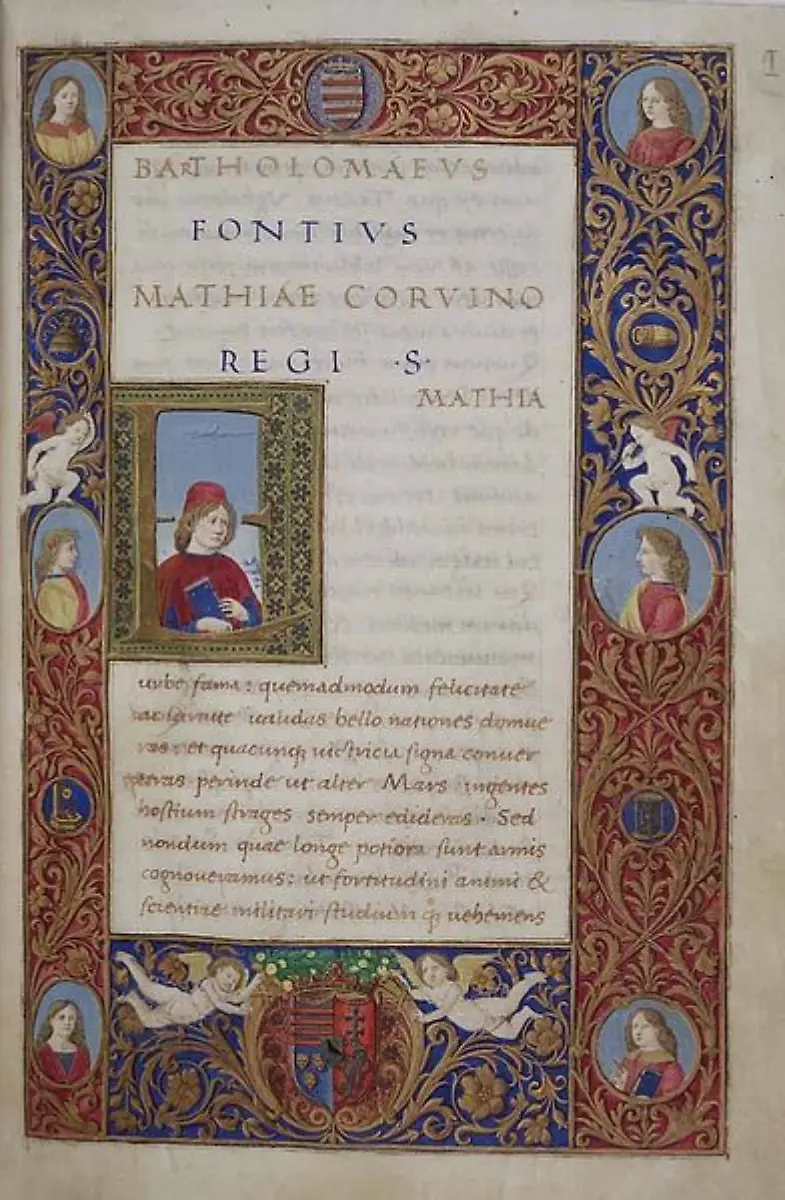 I
BARTHOLOMAEVS
FONTIVS
MATHIAE CORVINO
REGI ·S·
MATHIA
urbe fama: quemadmodum felicitate
ac uirtute ualidas bello nationes domue
ras: et quacunq; uictricia signa conuer
teras perinde ut alter Mars ingentes
hostium strages semper edideras. Sed
nondum quae longe potiora sunt armis
cognoueramus: ut fortitudini animi &
scientiae militari studium q; uehemens